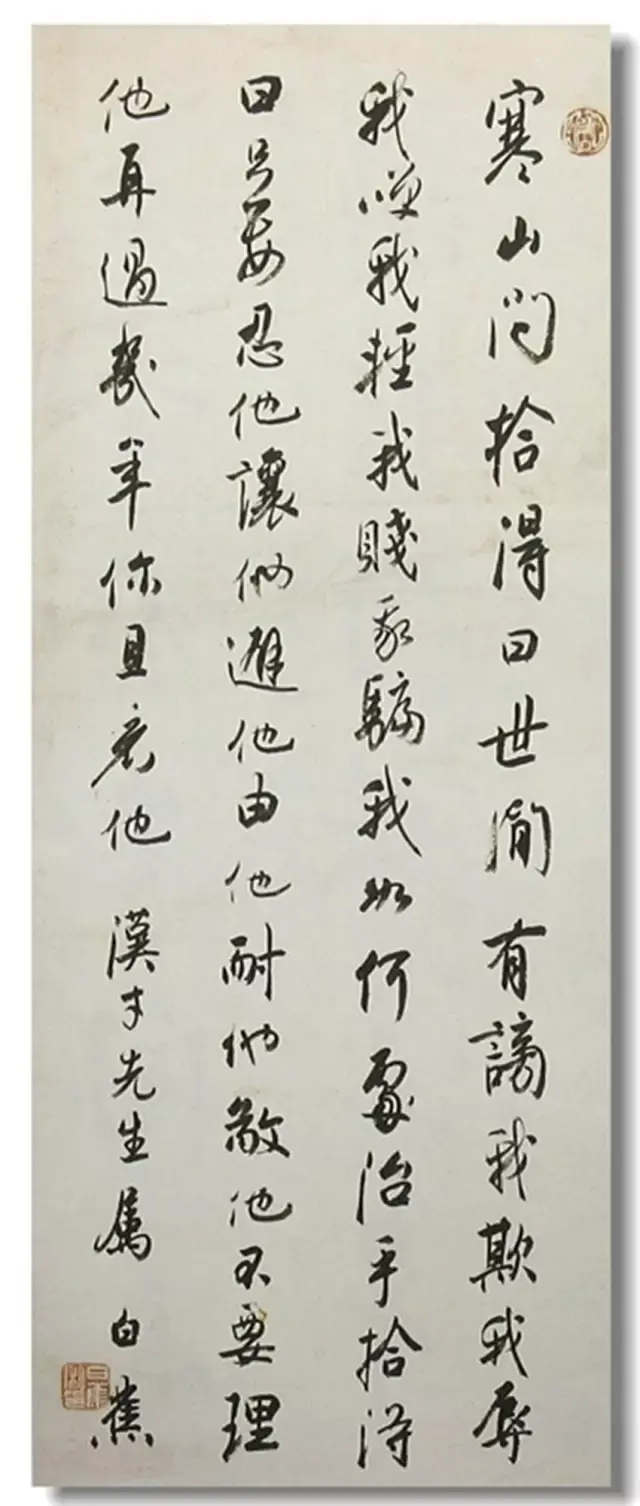 寒山問拾得曰世間有謗我欺我辱
我咲我輕我賤我騙我如何處治乎拾得
曰只要忍他讓他避他由他耐他敬他不要理
他再過幾年你且看他 漢才先生屬 白蕉